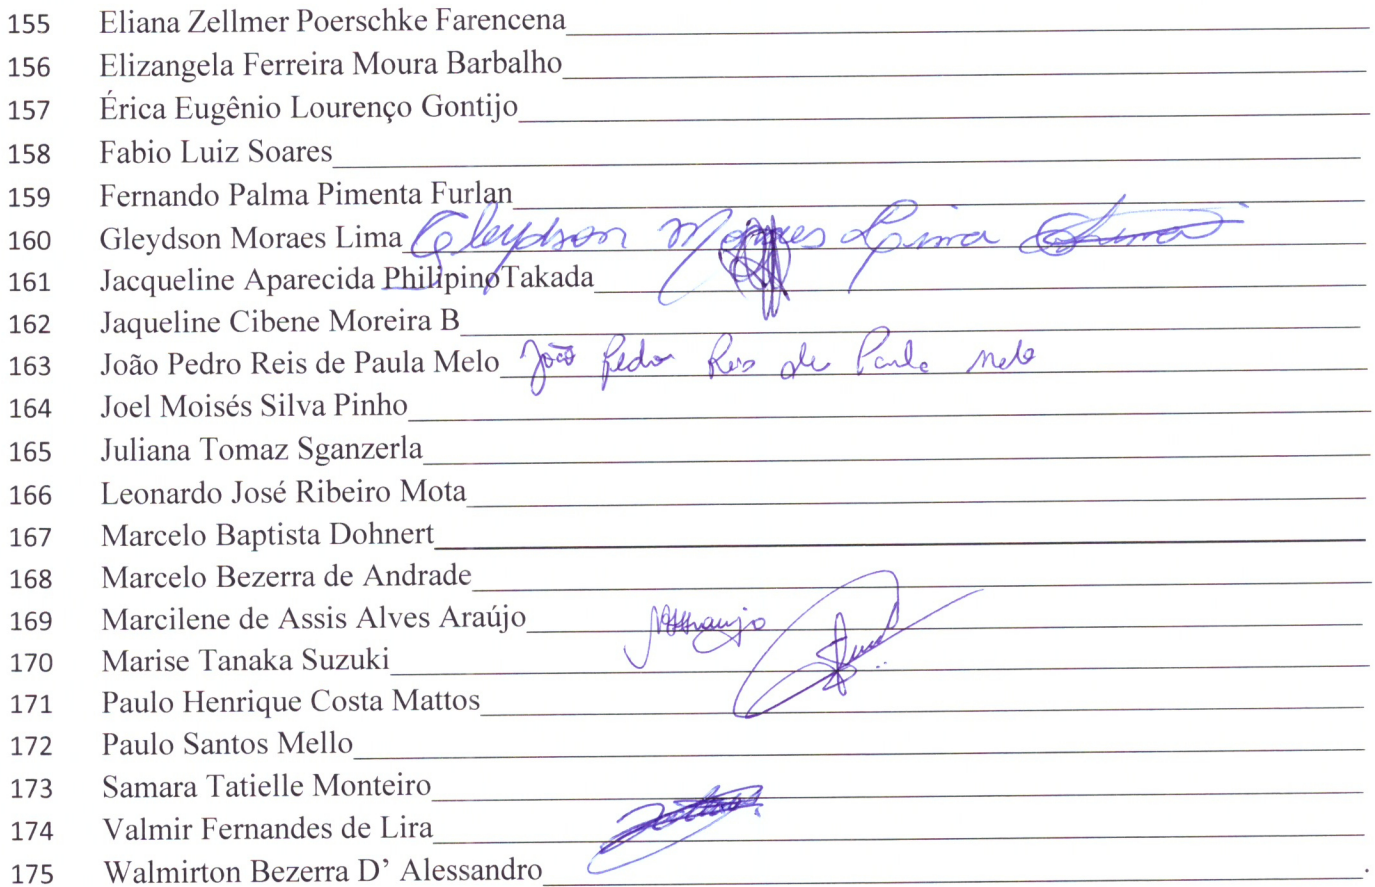 155 Eliana Zellmer Poerschke Farencena
156 Elizangela Ferreira Moura Barbalho
157 Érica Eugênio Lourenço Gontijo
158 Fabio Luiz Soares
159 Fernando Palma Pimenta Furlan
160 Gleydson Moraes Lima Gleydson Moraes Lima
161 Jacqueline Aparecida PhilipinoTakada
162 Jaqueline Cibene Moreira B
163 João Pedro Reis de Paula Melo João Pedro Reis de Paula Melo
164 Joel Moisés Silva Pinho
165 Juliana Tomaz Sganzerla
166 Leonardo José Ribeiro Mota
167 Marcelo Baptista Dohnert
168 Marcelo Bezerra de Andrade
169 Marcilene de Assis Alves Araújo MAAraujo
170 Marise Tanaka Suzuki
171 Paulo Henrique Costa Mattos
172 Paulo Santos Mello
173 Samara Tatielle Monteiro
174 Valmir Fernandes de Lira
175 Walmirton Bezerra D’ Alessandro.